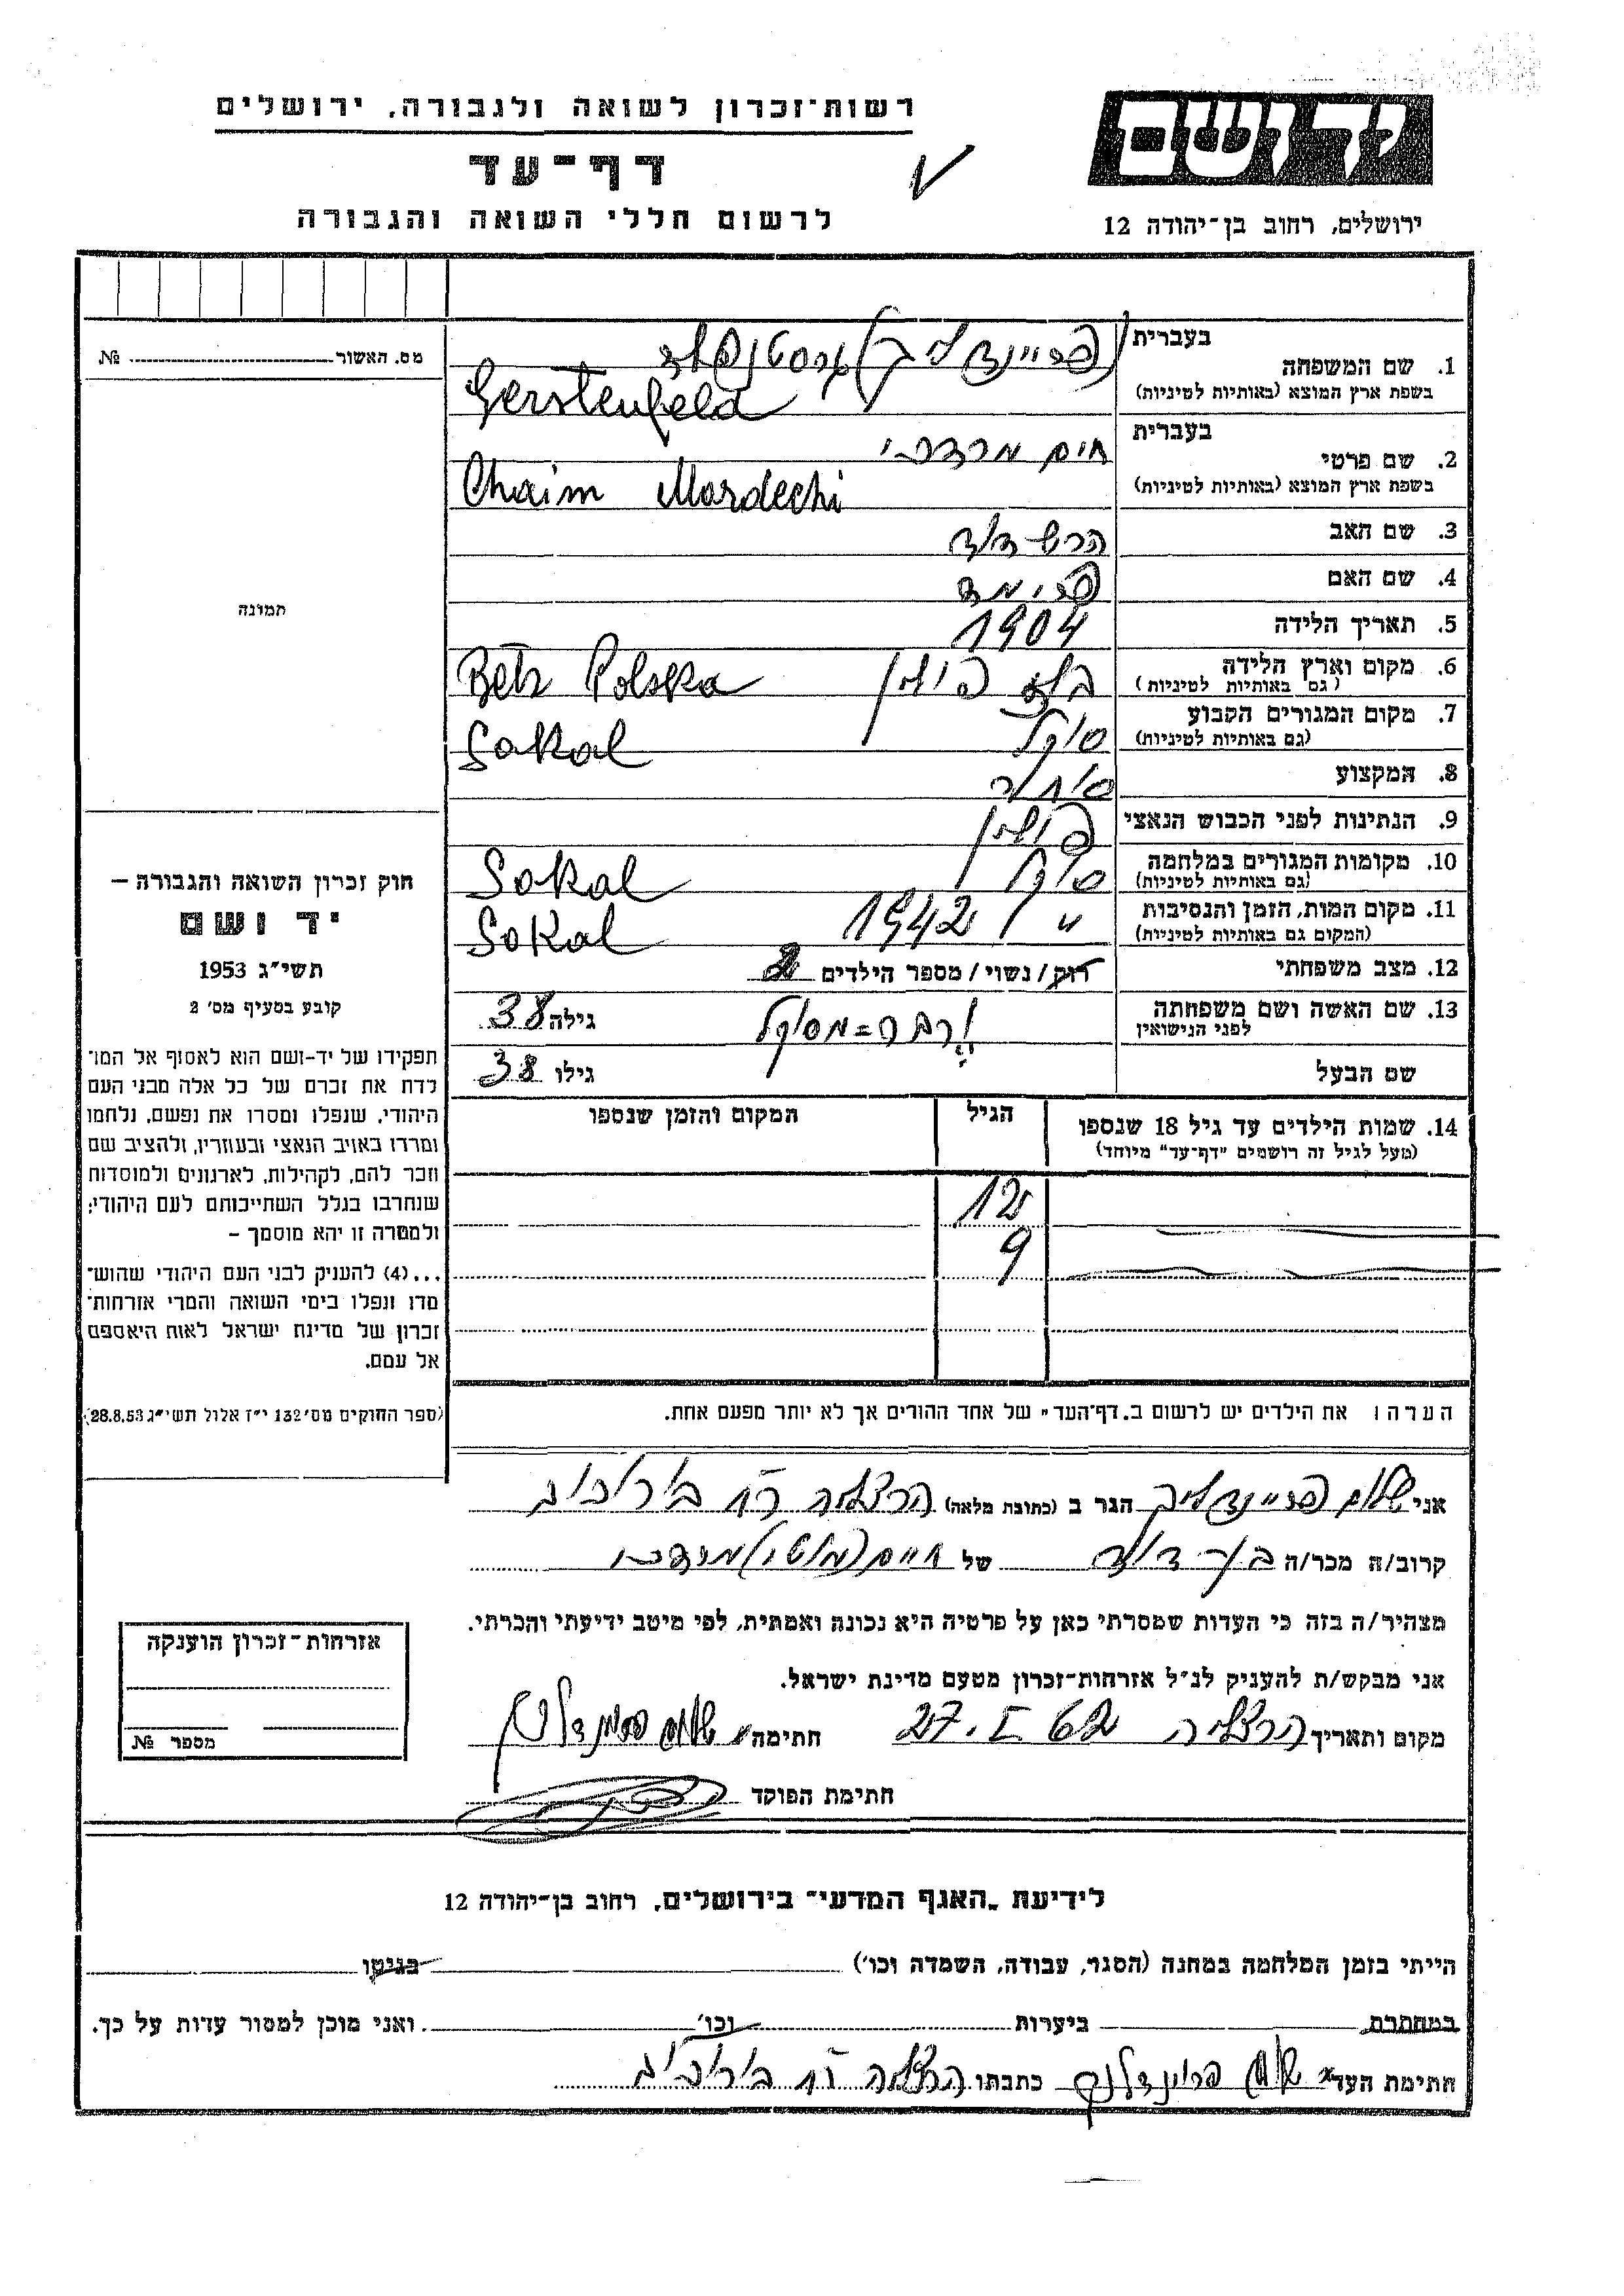 רשות־זכרון לשואה ולגבורה, ירושלים
דף־עד
לרשום חללי השואה והגבורה
יד ושם
ירושלים, רחוב בן־יהודה 12
מס. האשור № 
בעברית
1. שם המשפחה (פריינדליך) גרסטנפלד
בשפת ארץ המוצא (באותיות לטיניות) Gerstenfeld
בעברית
2. שם פרטי חיים מרדכי
בשפת ארץ המוצא (באותיות לטיניות) Chaim Mordechi
3. שם האב הרש דוד
4. שם האם
5. תאריך הלידה 1904
6. מקום וארץ הלידה בלז פולין Polska
(גם באותיות לטיניות)
7. מקום המגורים הקבוע סוקל Sokal
(גם באותיות לטיניות)
8. המקצוע סוחר
9. הנתינות לפני הכבוש הנאצי פולין
10. מקומות המגורים במלחמה סוקל Sokal
(גם באותיות לטיניות)
11. מקום המות, הזמן והנסיבות " 1942 Sokal
(המקום גם באותיות לטיניות)
12. מצב משפחתי רוק/נשוי/מספר הילדים 2
13. שם האשה ושם משפחתה מסוקל גילה 38
לפני הנישואין
שם הבעל גילו 38
14. שמות הילדים עד גיל 18 שנספו הגיל המקום והזמן שנספו
(מעל לגיל זה רושמים "דף־עד" מיוחד)
12
9
הערה: את הילדים יש לרשום ב.דף־העד" של אחד ההורים אך לא יותר מפעם אחת.
תמונה
חוק זכרון השואה והגבורה —
יד ושם
תשי"ג 1953
קובע בסעיף מס' 2
תפקידו של יד־ושם הוא לאסוף אל המו־
לדת את זכרם של כל אלה מבני העם
היהודי, שנפלו ומסרו את נפשם, נלחמו
ומרדו באויב הנאצי ובעוזריו, ולהציב שם
וזכר להם, לקהילות, לארגונים ולמוסדות
שנחרבו בגלל השתייכותם לעם היהודי;
ולמטרה זו יהא מוסמך –
...(4) להעניק לבני העם היהודי שהוש־
מדו ונפלו בימי השואה והמרי אזרחות־
זכרון של מדינת ישראל לאות היאספם
אל עמם.
(ספר החוקים מס' 132 י"ז אלול תשי"ג 28.8.53)
אני שלום פריינדליך הגר ב (כתובת מלאה) הרצליה
קרוב/ה מכר/ה בן דוד של חיים מרדכי
מצהיר/ה בזה כי העדות שמסרתי כאן על פרטיה היא נכונה ואמתית, לפי מיטב ידיעתי והכרתי.
אני מבקש/ת להעניק לנ"ל אזרחות־זכרון מטעם מדינת ישראל.
מקום ותאריך הרצליה 27.I 62 חתימה שלום פריינדליך
חתימת הפוקד
אזרחות־זכרון הוענקה
מספר №
לידיעת "האגף המדעי" בירושלים, רחוב בן־יהודה 12
הייתי בזמן המלחמה במחנה (הסגר, עבודה, השמדה וכו') בגיטו
במחתרת ביערות וכו' ואני מוכן למסור עדות על כך.
חתימת העד שלום פריינדליך כתבתו הרצליה